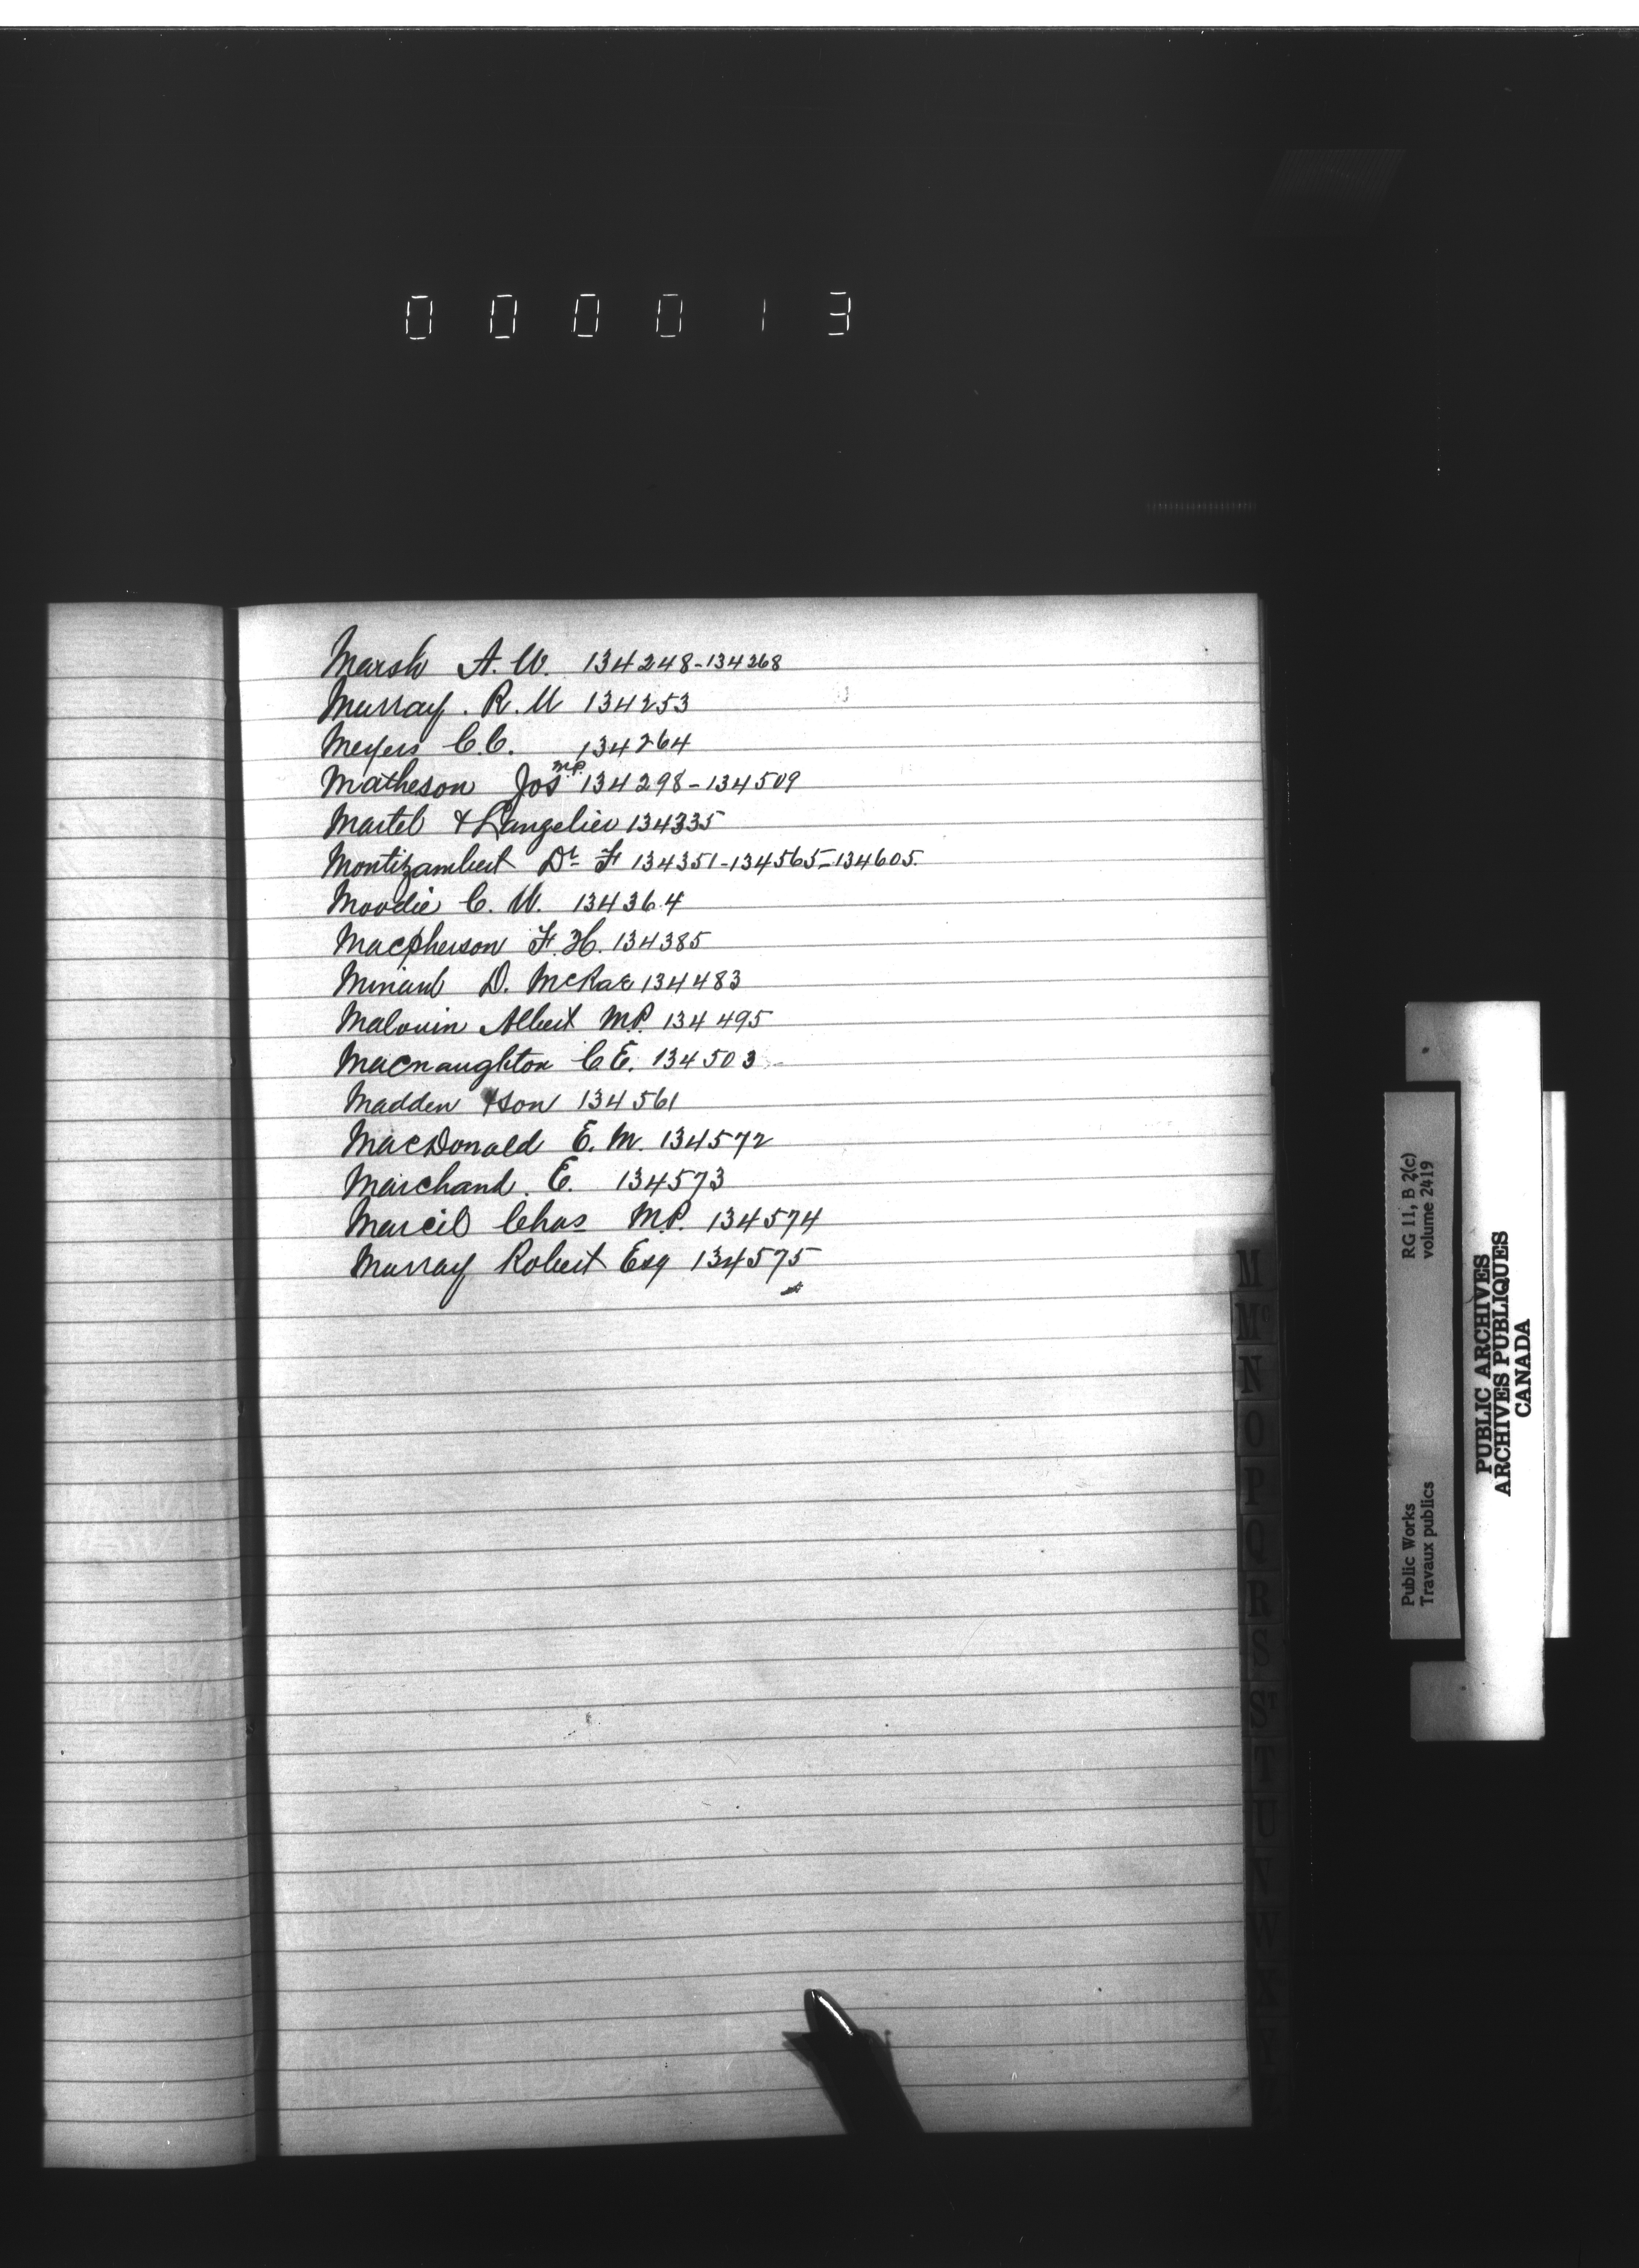 000013
Marsh A. W. 134248-134268
Murray. R. W 134253
Meyers C. C. 134264
Matheson Jos M.P. 134298-134509
Martel & Langelier 134335
Montizambert Dr F 134351-134565-134605.
Moodie C. W. 134364
Macpherson F. H. 134385
Minard D. McRae 134483
Malouin Albert M.P. 134495
Macnaughton C E. 134503
Madden & Son 134561
MacDonald E. M. 134572
Marchand. E. 134573
Marcil Chas M.P. 134574
Murray Robert Esq 134575
M
Mc
N
O
P
Q
R
S
ST
T
U
V
W
X
Y
Public Works
Travaux publics
RG 11, B 2(c)
volume 2419
PUBLIC ARCHIVES
ARCHIVES PUBLIQUES
CANADA